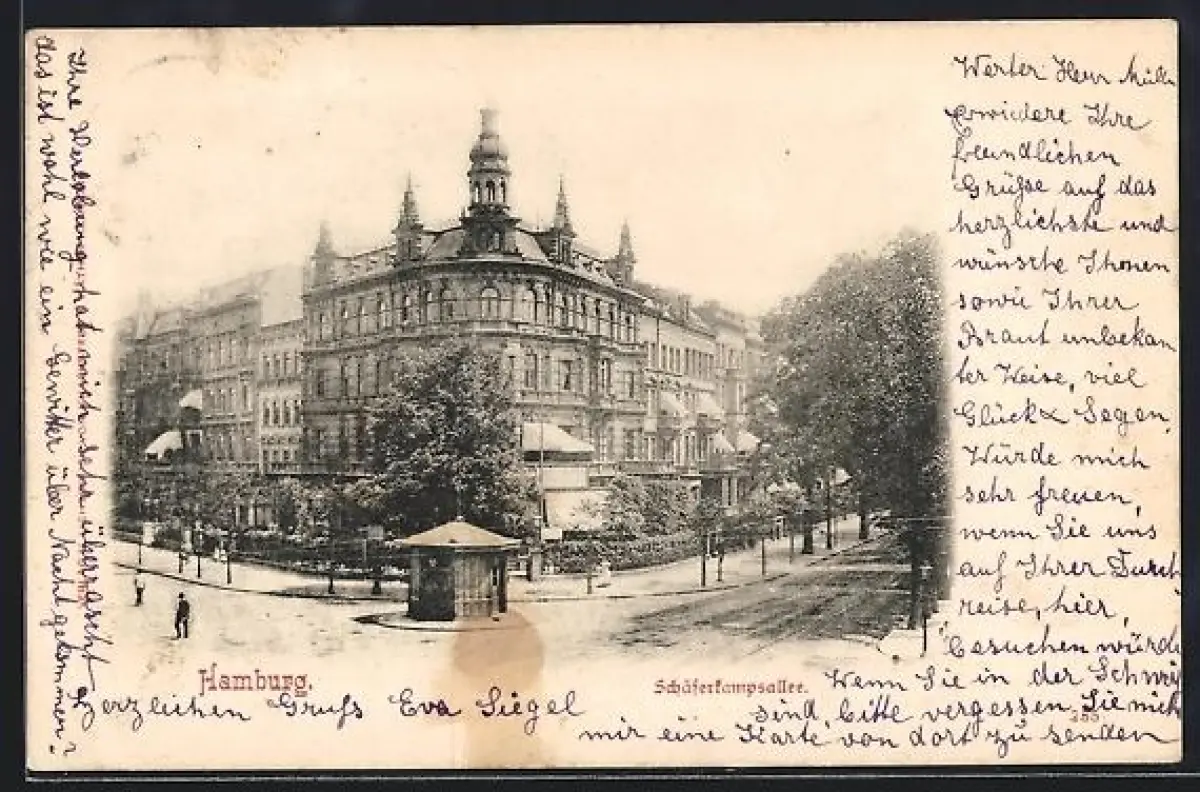 Werter Herr Müller
erwiedere Ihre
freundlichen
Grüße auf das
herzlichste und
wünsche Ihnen
sowie Ihrer
Braut unbekan
ter Weise, viel
Glück & Segen,
Würde mich
sehr freuen,
wenn Sie uns
auf Ihrer Durch
reise, hier,
besuchen würde
Wenn Sie in der Schweiz
sind, bitte vergessen Sie nicht
mir eine Karte von dort zu senden
Hamburg.
Schäferkampsallee.
herzlichen Gruß Eva Siegel
Ihre Verlobung hat mich sehr überrascht
das ist wohl wie ein Gewitter über Nacht gekommen?